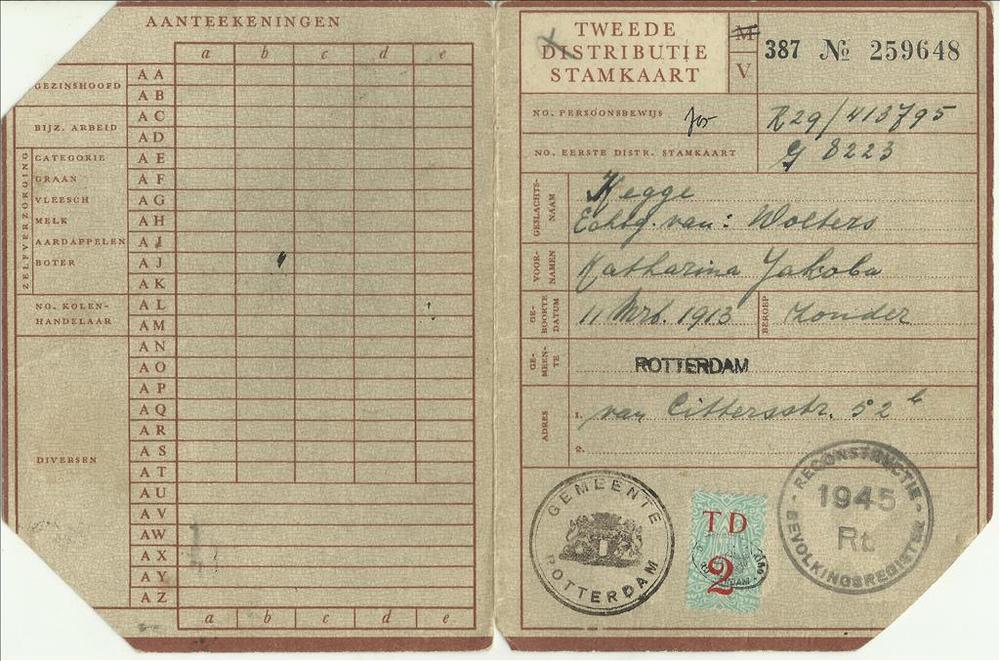 AANTEEKENINGEN
a b c d e
GEZINSHOOFD
A A
A B
BIJZ. ARBEID
A C
A D
ZELFVERZORGING
CATEGORIE
A E
GRAAN
A F
VLEESCH
A G
MELK
A H
AARDAPPELEN
A I
BOTER
A J
A K
NO. KOLEN-
HANDELAAR
A L
A M
A N
A O
A P
A Q
A R
DIVERSEN
A S
A T
A U
A V
A W
A X
A Y
A Z
a b c d e
TWEEDE
DISTRIBUTIE
STAMKAART
M
V
387 No 259648
NO. PERSOONSBEWIJS
R29/413795
NO. EERSTE DISTR. STAMKAART
G 8223
GESLACHTS-
NAAM
Hegge
Echtg. van: Wolters
VOOR-
NAMEN
Katharina Jakoba
GE-
BOORTE
DATUM
11 Mrt. 1913
BEROEP
Zonder
GE-
MEEN-
TE
ROTTERDAM
ADRES
1. van Cittersstr. 52 b
2.
GEMEENTE
ROTTERDAM
TD
2
RECONSTRUCTIE
1945
Rt
BEVOLKINGSREGISTER